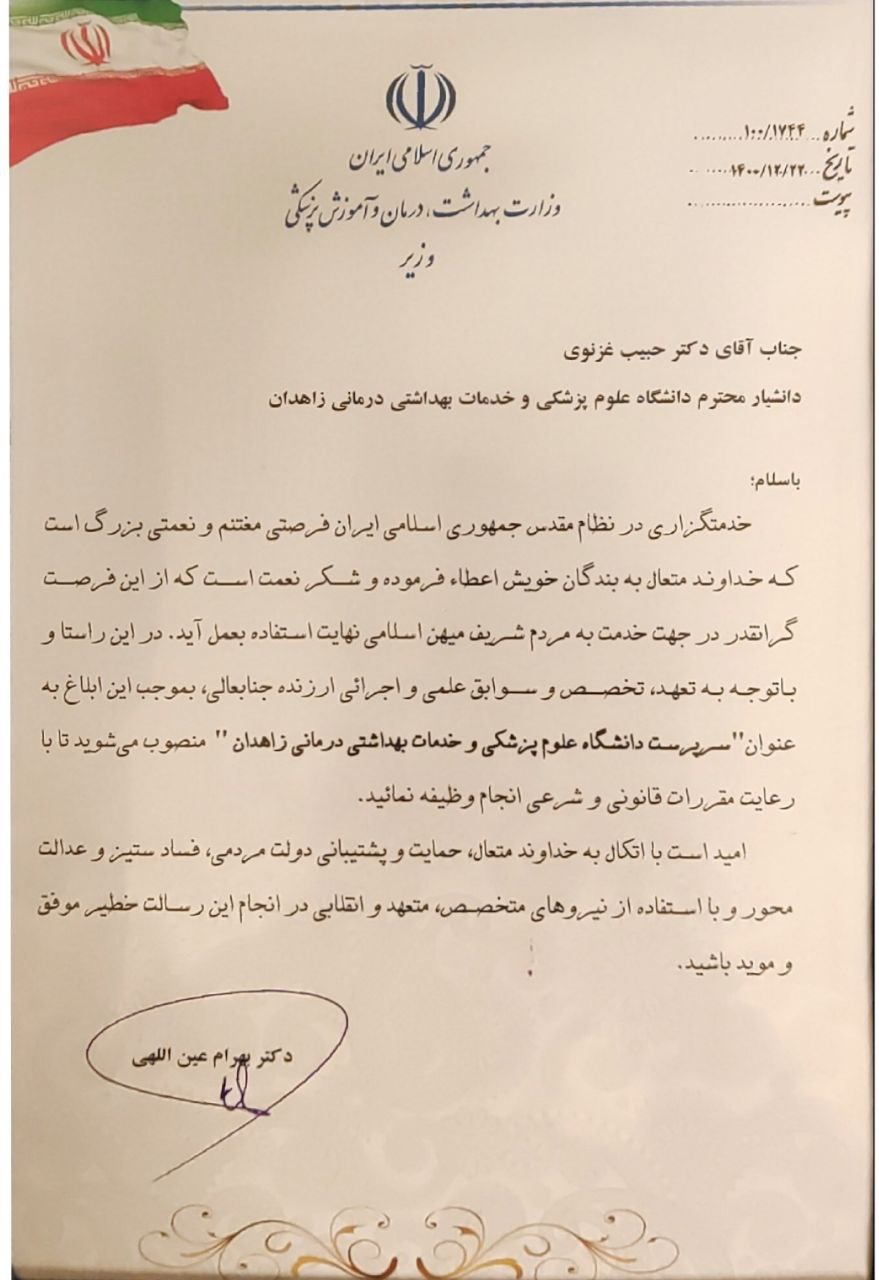 جمهوری اسلامی ایران
وزارت بهداشت، درمان و آموزش پزشکی
وزیر
شماره ...۱۰۰/۱۷۴۴...
تاریخ ...۱۴۰۰/۱۲/۲۲...
پیوست ...
جناب آقای دکتر حبیب غزنوی
دانشیار محترم دانشگاه علوم پزشکی و خدمات بهداشتی درمانی زاهدان
باسلام؛
خدمتگزاری در نظام مقدس جمهوری اسلامی ایران فرصتی مغتنم و نعمتی بزرگ است
که خداوند متعال به بندگان خویش اعطاء فرموده و شکر نعمت است که از این فرصت
گرانقدر در جهت خدمت به مردم شریف میهن اسلامی نهایت استفاده بعمل آید. در این راستا و
باتوجه به تعهد، تخصص و سوابق علمی و اجرائی ارزنده جنابعالی، بموجب این ابلاغ به
عنوان"سرپرست دانشگاه علوم پزشکی و خدمات بهداشتی درمانی زاهدان " منصوب می‌شوید تا با
رعایت مقررات قانونی و شرعی انجام وظیفه نمائید.
امید است با اتکال به خداوند متعال، حمایت و پشتیبانی دولت مردمی، فساد ستیز و عدالت
محور و با استفاده از نیروهای متخصص، متعهد و انقلابی در انجام این رسالت خطیر موفق
و موید باشید.
دکتر بهرام عین اللهی